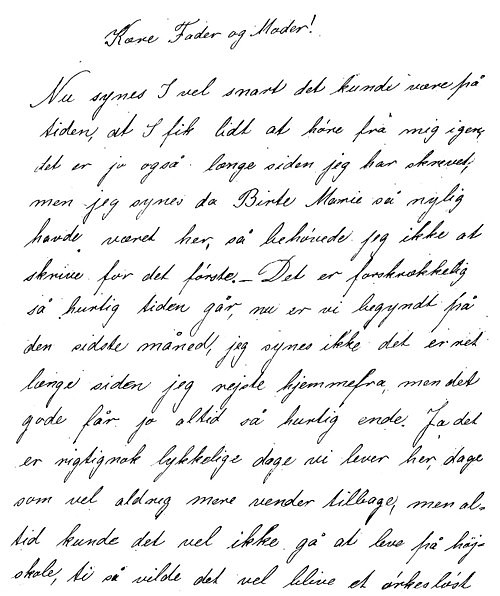 Kære Fader og Moder!
Nu synes I vel snart det kunde være på
tiden, at I fik lidt at höre frå mig igen,
det er jo også længe siden jeg har skrevet,
men jeg synes da Birte Marie så nylig
havde været her, så behövede jeg ikke at
skrive for det förste. – Det er forskrækkelig
så hurtig tiden går, nu er vi begyndt på
den sidste måned, jeg synes ikke det er ret
længe siden jeg rejste hjemmefra, men det
gode får jo altid så hurtig ende. Ja det
er rigtignok lykkelige dage vi lever her, dage
som vel aldrig mere vender tilbage, men al-
tid kunde det vel ikke gå at leve på höj-
skole, ti så vilde det vel blive et örkeslöst